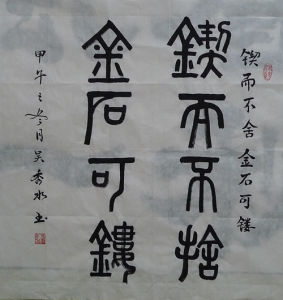 锲而不舍金石可镂
鍥而不捨
金石可鏤
甲午之冬月吴秀水书